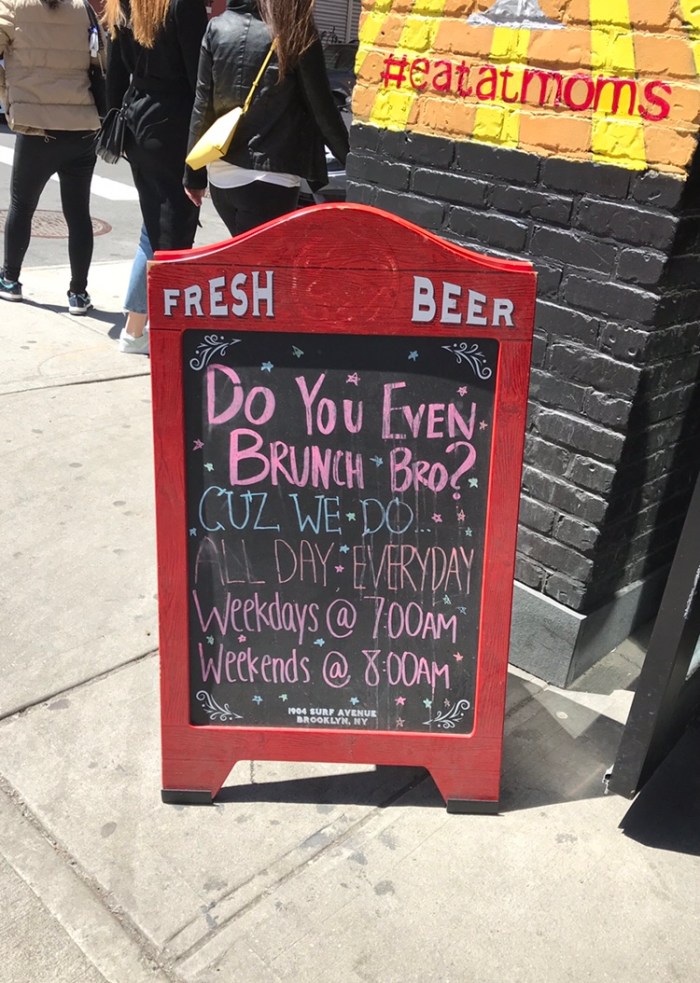 #eatatmoms
FRESH BEER
DO YOU EVEN
BRUNCH BRO?
CUZ WE DO...
ALL DAY EVERYDAY
Weekdays @ 7:00AM
Weekends @ 8:00AM
1904 SURF AVENUE
BROOKLYN, NY